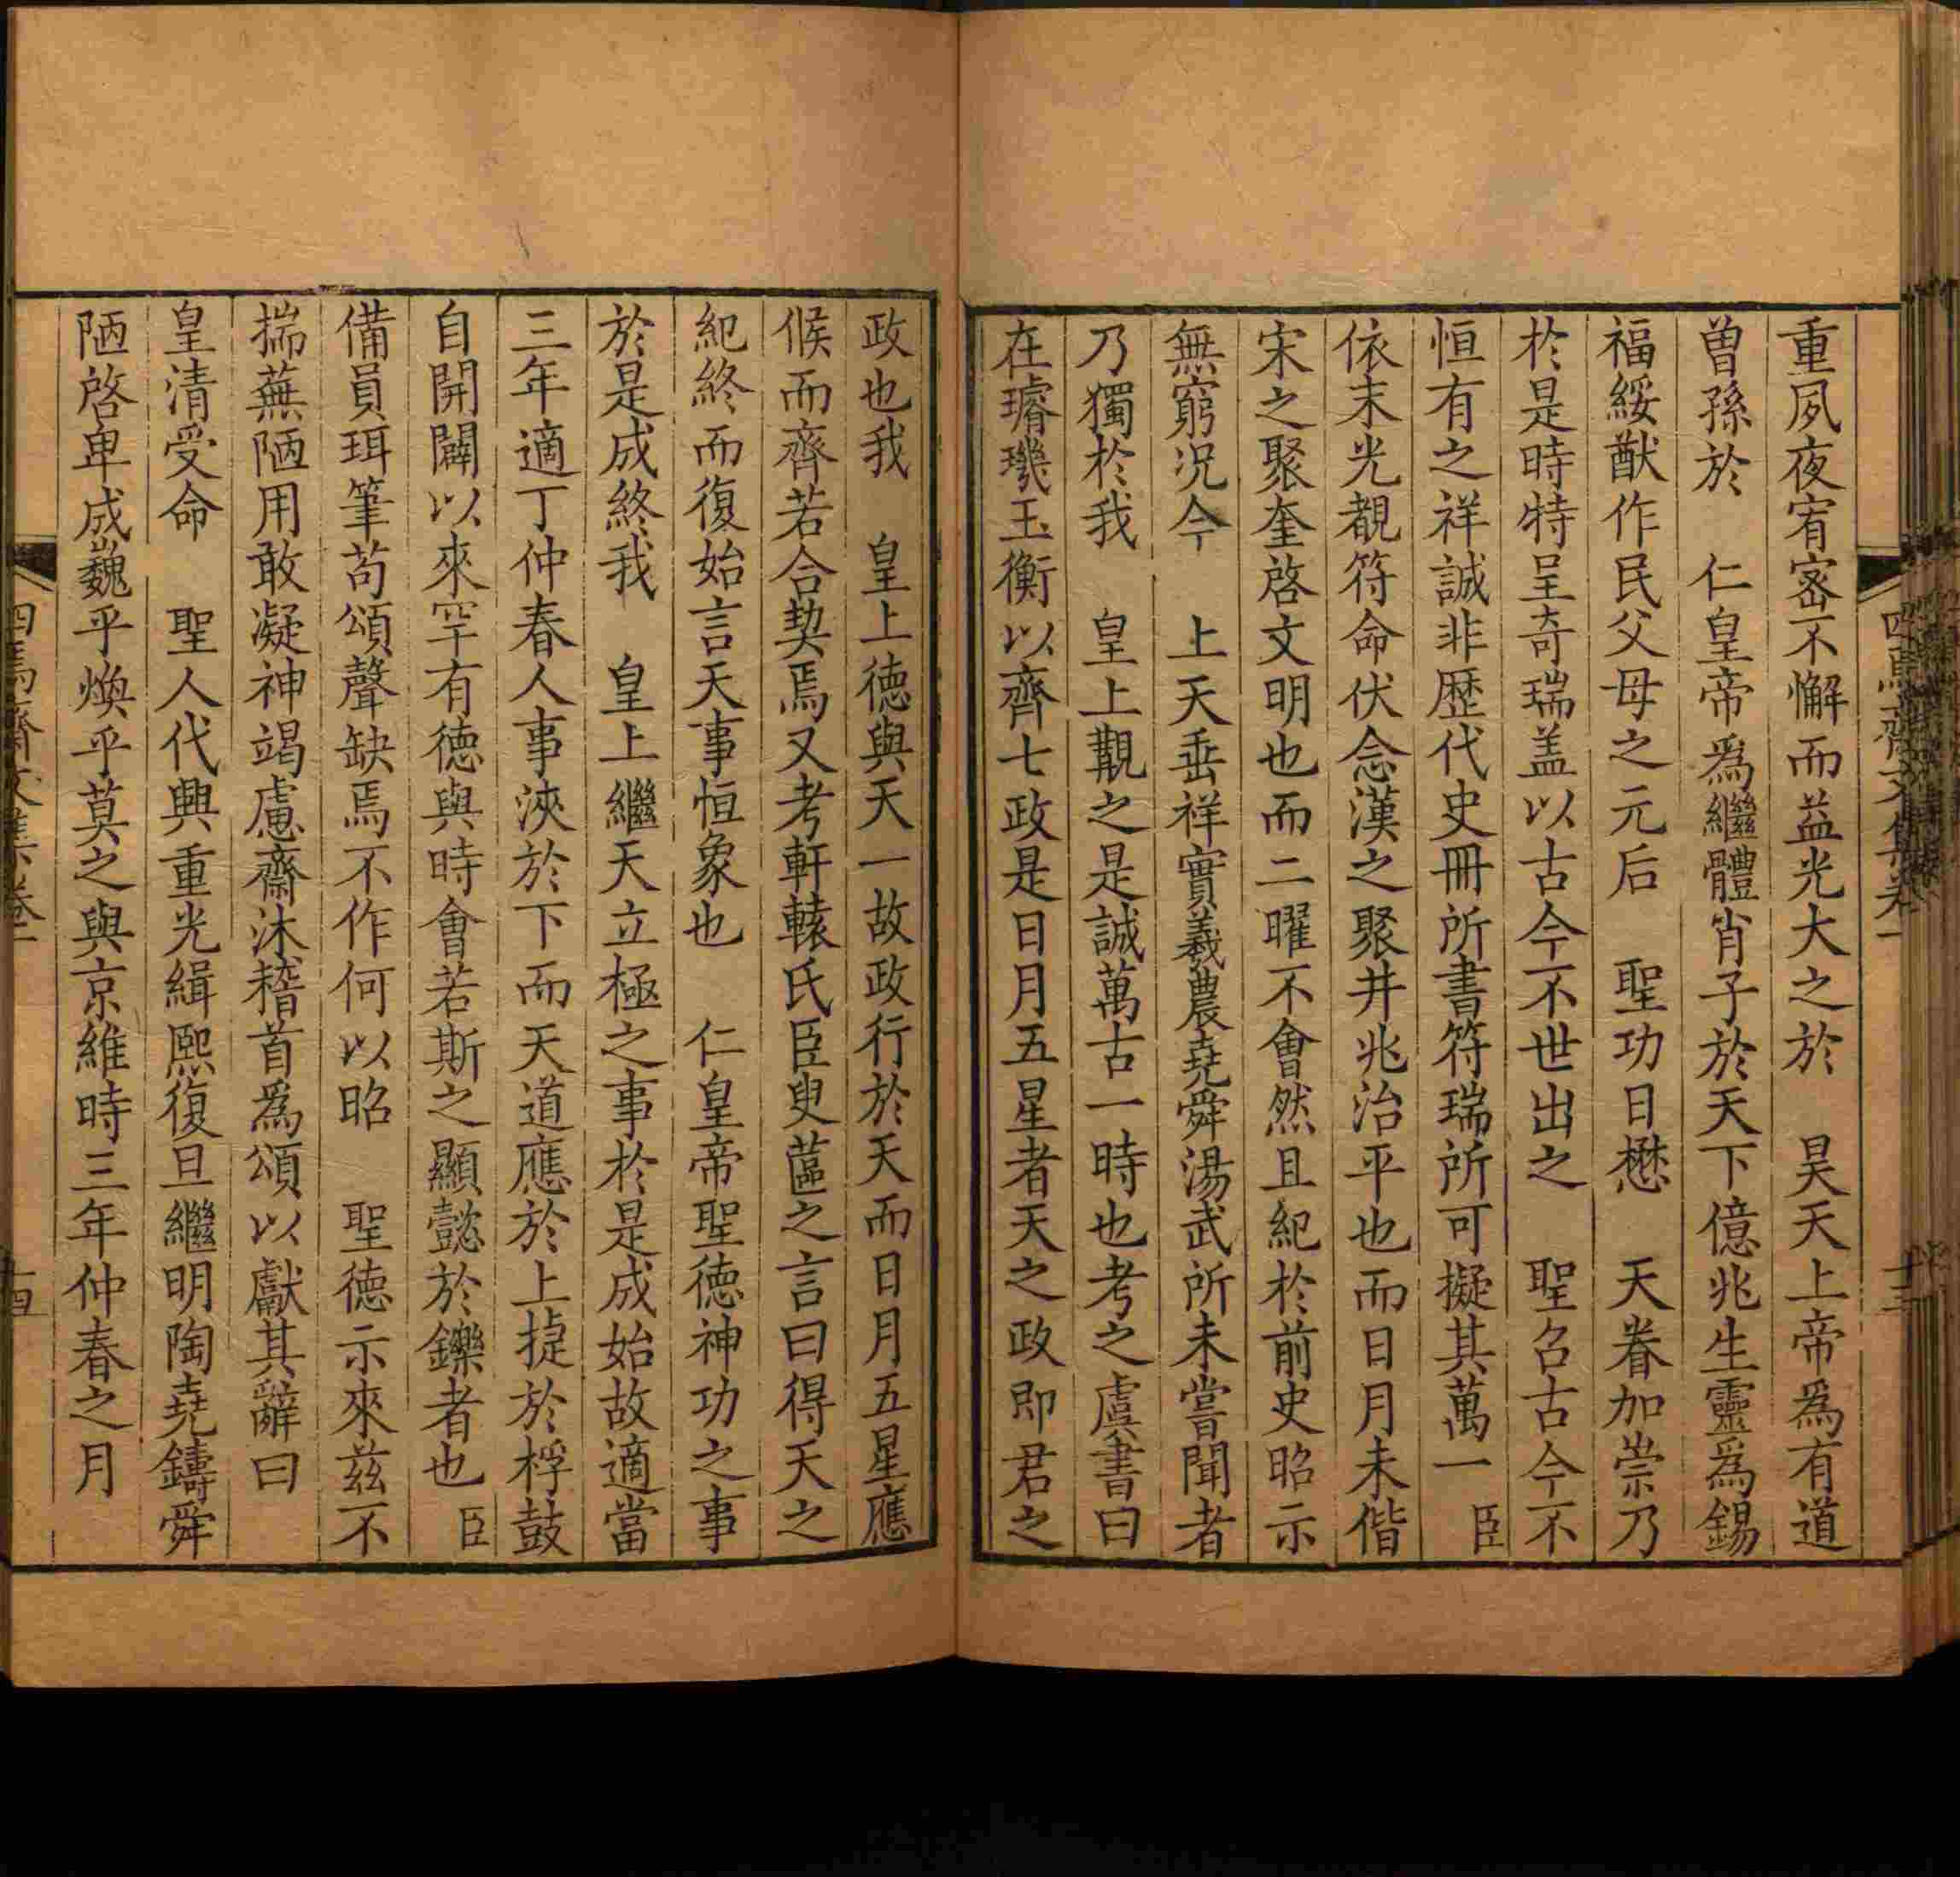 四焉齋文集卷一
十三
重夙夜宥宻不懈而益光大之於　昊天上帝爲有道
曾孫於　仁皇帝爲繼體肖子於天下億兆生靈爲錫
福綏猷作民父母之元后　聖功日懋　天眷加崇乃
於是時特呈奇瑞盖以古今不世出之　聖召古今不
恒有之祥誠非歴代史冊所書符瑞所可擬其萬一　臣
依末光覩符命伏念漢之聚井兆治平也而日月未偕
宋之聚奎啓文明也而二曜不會然且紀於前史昭示
無窮況今　上天垂祥實羲農堯舜湯武所未嘗聞者
乃獨於我　皇上觀之是誠萬古一時也考之虞書曰
在璿璣玉衡以齊七政是日月五星者天之政即君之
政也我　皇上德與天一故政行於天而日月五星應
候而齊若合契焉又考軒轅氏臣臾蓲之言曰得天之
紀終而復始言天事恒象也　仁皇帝聖德神功之事
於是成終我　皇上繼天立極之事於是成始故適當
三年適丁仲春人事浹於下而天道應於上㨗於桴鼓
自開闢以來罕有德與時會若斯之顯懿於鑠者也　臣
備員珥筆苟頌聲缺焉不作何以昭　聖德示來茲不
揣蕪陋用敢凝神竭慮齋沐稽首爲頌以獻其辭曰
皇清受命　聖人代興重光緝熙復旦繼明陶堯鑄舜
陋啓卑成巍乎煥乎莫之與京維時三年仲春之月
四焉齋文集卷一